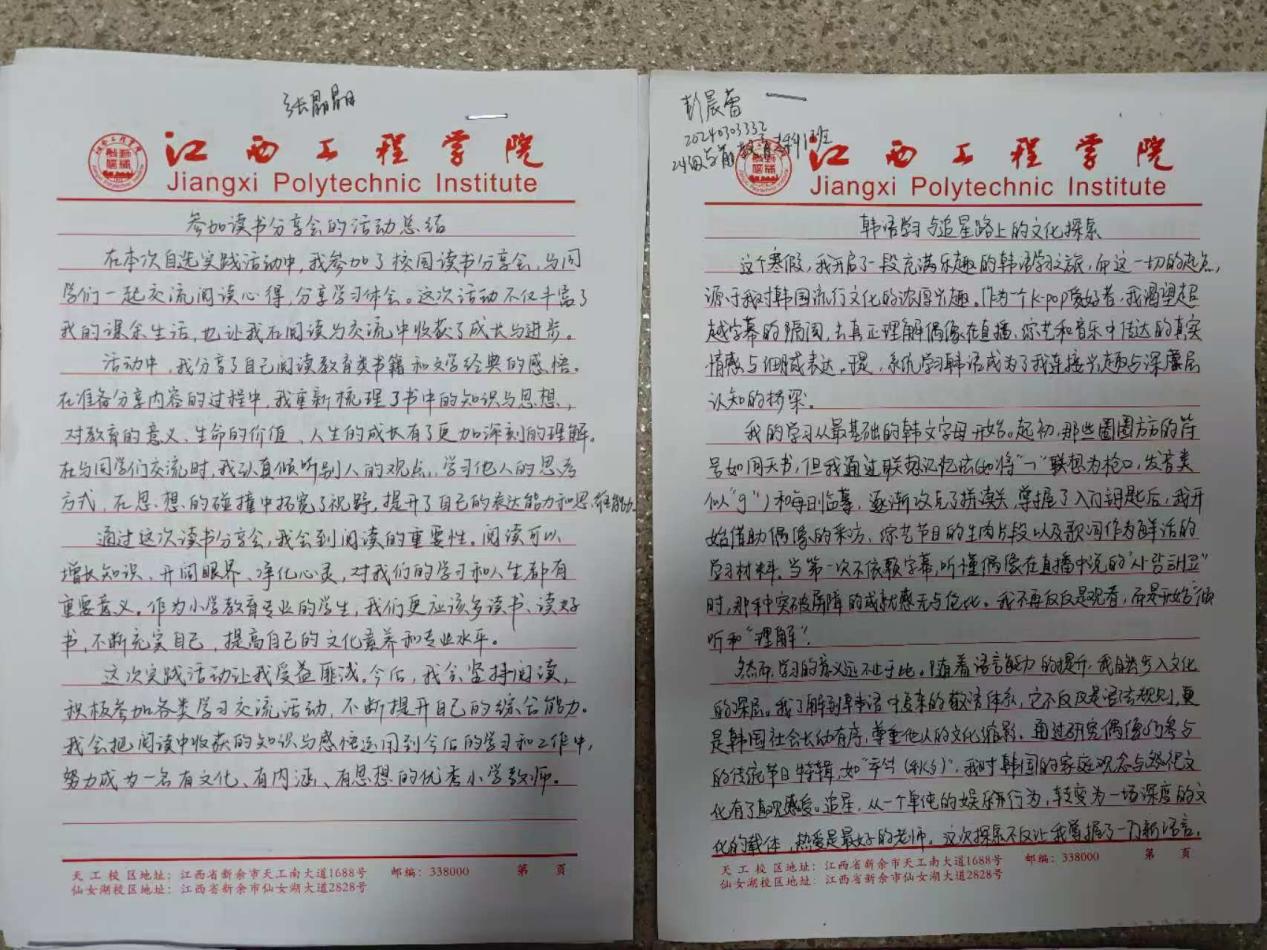 张晶晶
江西工程学院
Jiangxi Polytechnic Institute
参加读书分享会的活动总结
在本次自选实践活动中，我参加了校园读书分享会，与同
学们一起交流阅读心得，分享学习体会。这次活动不仅丰富了
我的课余生活，也让我在阅读与交流中收获了成长与进步。
活动中，我分享了自己阅读教育类书籍和文学经典的感悟。
在准备分享内容的过程中，我重新梳理了书中的知识与思想，
对教育的意义、生命的价值、人生的成长有了更加深刻的理解。
在与同学们交流时，我认真倾听别人的观点，学习他人的思考
方式，在思想的碰撞中拓宽了视野，提升了自己的表达能力和思维能力
通过这次读书分享会，我会到阅读的重要性。阅读可以
增长知识、开阔眼界、净化心灵，对我们的学习和人生都有
重要意义。作为小学教育专业的学生，我们更应该多读书、读好
书，不断充实自己，提高自己的文化素养和专业水平。
这次实践活动让我受益匪浅。今后，我会坚持阅读，
积极参加各类学习交流活动，不断提升自己的综合能力。
我会把阅读中收获的知识与感悟运用到今后的学习和工作中，
努力成为一名有文化、有内涵、有思想的优秀小学教师。
天工校区地址：江西省新余市天工南大道1688号 邮编：338000 第 页
仙女湖校区地址：江西省新余市仙女湖大道2828号
彭晨蕾
20240303332
24级学前教育本科1班
江西工程学院
Jiangxi Polytechnic Institute
韩语学习与追星路上的文化探索
这个寒假，我开启了一段充满乐趣的韩语学习之旅，而这一切的起点，
源于我对韩国流行文化的浓厚兴趣。作为一个K-pop爱好者，我渴望超
越字幕的隔阂，去真正理解偶像在直播、综艺和音乐中传达的真实
情感与细腻表达。于是，系统学习韩语成为了我连接兴趣与深层
认知的桥梁。
我的学习从最基础的韩文字母开始。起初，那些圈圈方方的符
号如同天书，但我通过联想记忆法（如将"ㄱ"联想为枪口，发音类
似"g"）和每日临摹，逐渐攻克了拼读关。掌握了入门钥匙后，我开
始借助偶像的采访、综艺节目的生肉片段以及歌词作为鲜活的
学习材料。当第一次不依赖字幕，听懂偶像在直播中说的"사랑해요"
时，那种突破屏障的成就感无与伦比。我不再仅仅是观看，而是开始"倾
听"和"理解"。
然而，学习的意义远不止于此。随着语言能力的提升，我自然步入文化
的深层。我了解到韩语中复杂的敬语体系，它不仅仅是语法规则，更
是韩国社会长幼有序，尊重他人的文化缩影。通过研究偶像们参与
的传统节日特辑，如"추석（秋夕）"，我对韩国的家庭观念与祭祀文
化有了直观感受。追星，从一个单纯的娱乐行为，转变为一场深度的文
化的载体，热爱是最好的老师。这次探索不仅让我掌握了一门新语言，
天工校区地址：江西省新余市天工南大道1688号 邮编：338000 第 页
仙女湖校区地址：江西省新余市仙女湖大道2828号